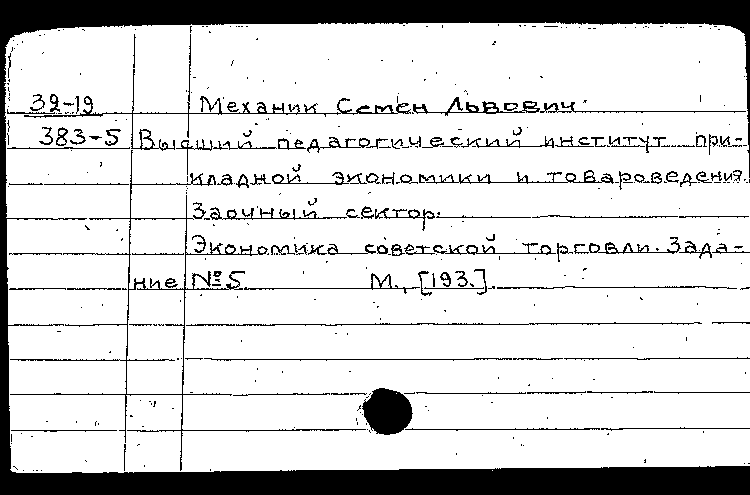 32-19 Механик, Семен Львович.
383-5 Высший педагогический институт при-
кладной экономики и товароведения.
Заочный сектор.
Экономика советской торговли. Зада-
ние №5 М., [193.].